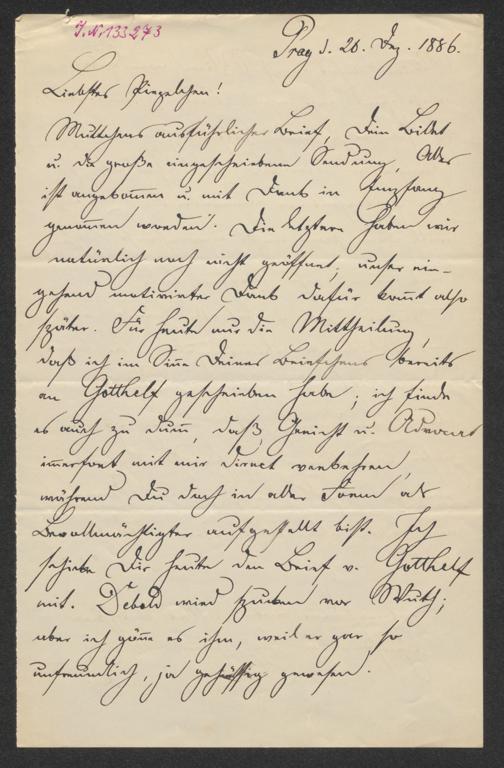 J.N. 133.273
Prag d. 20. Dez. 1886.
Liebstes
Muttchens ausführlicher Brief, Dein Billet
u. die große eingeschriebene Sendung, Alles
ist angekom̄en u. mit Dank in Empfang
genom̄en worden. Die letztere haben wir
natürlich noch nicht geöffnet; unser ein-
gehend motivirter Dank dafür kom̄t also
später. Für heute nur die Mittheilung,
daß ich im Sinne Deines Briefchens bereits
an Gotthelf geschrieben habe; ich finde
es auch zu dum̄, daß Gericht u. Advocat
im̄erfort mit mir direct verkehren,
während Du doch in aller Form als
Bevollmächtigter aufgestellt bist. Ich
schicke Dir heute den Brief v. Gotthelf
mit. wird spucken vor Wuth;
aber ich gön̄e es ihm, weil er gar so
unfreundlich, ja gehässig gewesen.